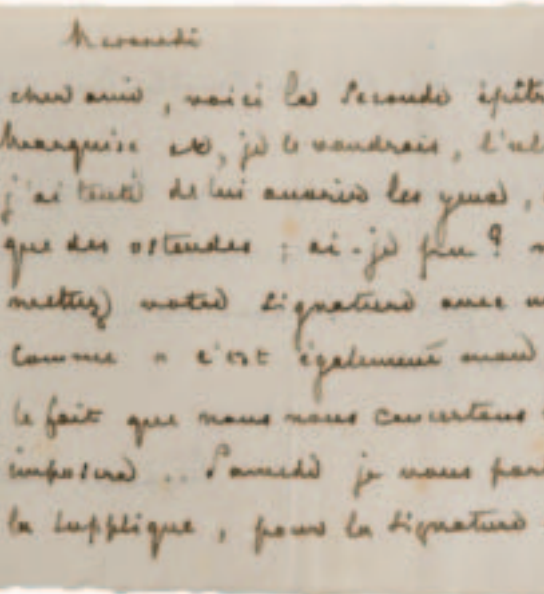 Mercredi
cher ami, voici la seconde épitr
Marquise et, je le voudrais, l'ul
j'ai tenté de lui ouvrir les yeux,
que des ostendes ; ai-je pu ?
mettez votre signature avec
comme " c'est également mon
le fait que nous nous concertons
imposera .. Samedi je vous par
la supplique, pour la signature